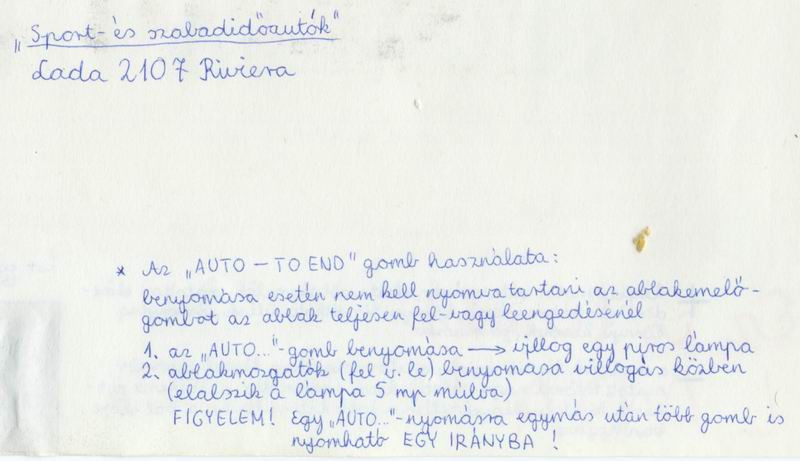 „Sport- és szabadidőautók"
Lada 2107 Riviera
* Az „AUTO – TO END" gomb használata:
benyomása esetén nem kell nyomva tartani az ablakemelő-
gombot az ablak teljesen fel- vagy leengedésénél
1. az „AUTO..."-gomb benyomása → villog egy piros lámpa
2. ablakmozgatók (fel v. le) benyomása villogás közben
(elalszik a lámpa 5 mp múlva)
FIGYELEM! Egy „AUTO..."-nyomásra egymás után több gomb is
nyomható EGY IRÁNYBA !